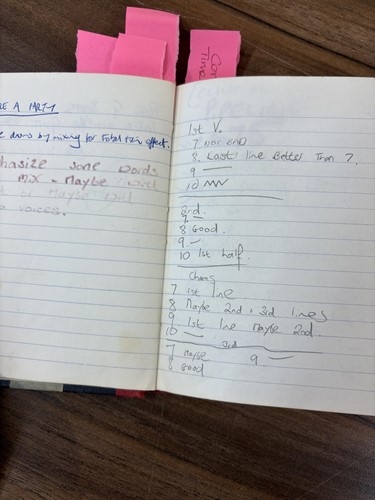 Con
Time
RE A PARTY
e drums by mixing for Total thin effect.
phasize some words
MX - Maybe
Maybe
voices.
1st V.
7 Not END
8. Last line Better Than 7.
9
10
2nd.
7
8 Good.
9
10 1st half
Chorus
7 1st line
8 Maybe 2nd + 3rd lines
9 1st line Maybe 2nd.
10
3rd
7 Maybe
9
8 Good